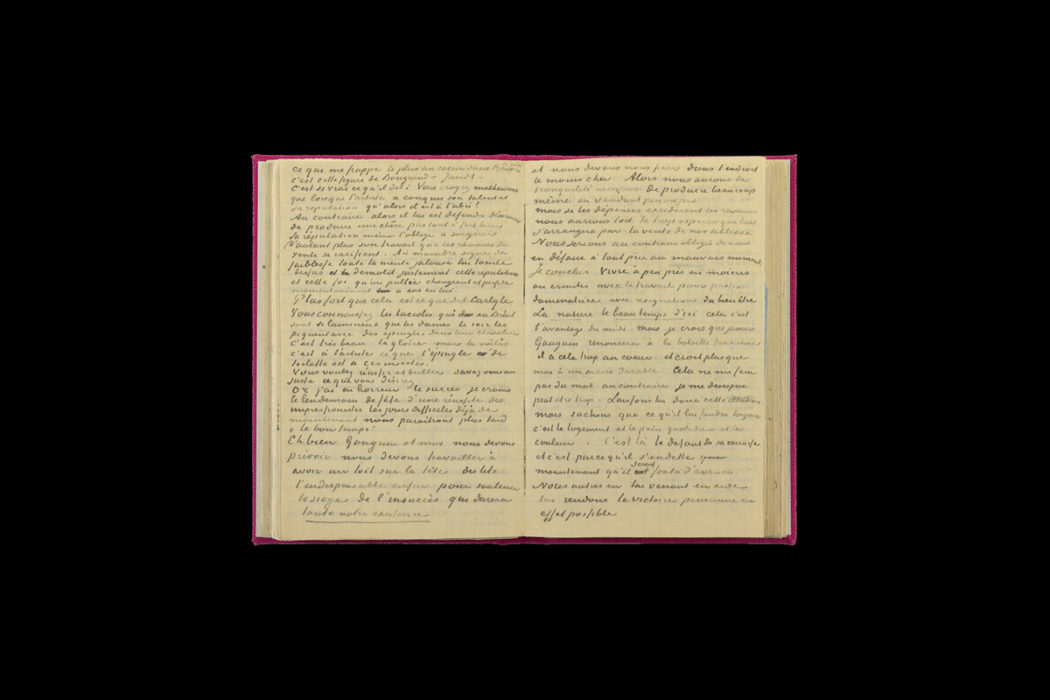 ce que me frappe le plus au coeur dans
c'est cette figure de Bongrand – Jundt –
C'est si vrai ce qu'il dit: Vous croyez malheureux
que lorsque l'artiste a conquis son talent et
sa réputation qu'alors il est à l'abri!
Au contraire alors il lui est défendu
de produire une chose pas tout à fait bien
Sa réputation même l'oblige à soigner
d'autant plus son travail que les chances de
vente se rarifient. Au moindre signe de
faiblesse toute la meute jalouse lui tombe
dessus et démolit justement cette réputation
et cette foi qu'un public changeant et perfide
momentanément a eue en lui.
Plus fort que cela est ce que dit Carlyle
Vous connaissez les lucioles qui au Brésil
sont si lumineux que les dames le soir les
piquent avec des épingles dans leur chevelure
c'est très beau la gloire mais la voilà
c'est à l'artiste ce que l'épingle de
toilette est à ces insectes.
Vous voulez réussir et briller savez vous au
juste ce que vous désirez
Or j'ai en horreur le succès je crains
le lendemain de fête d'une réussite des
impressionistes les jours difficiles déjà de
maintenant nous paraitront plus tard
le bon temps.
Eh bien Gauguin et moi nous devons
prévoir nous devons travailler à
avoir un toit sur la tête des lits
l'indispensable enfin pour soutenir
le siège de l'insuccès qui durera
toute notre existence
et nous devons nous fixer dans l'endroit
le moins cher. Alors nous aurons la
tranquilité nécessaire de produire beaucoup
même en vendant peu ou pas
mais si les dépenses excédaient les revenus
nous aurions tort de trop espérer que tout
s'arrangera par la vente de nos tableaux
Nous serions au contraire obligés de nous
en défaire à tout prix au mauvais moment.
Je conclus Vivre à peu près en moines
ou ermites avec le travail pour passion
dominatrice avec résignation du bien être
La nature le beau temps d'ici cela c'est
l'avantage du midi. Mais je crois que jamais
Gauguin renoncera à la bataille parisienne
il a cela trop au coeur et croit plus que
moi à un succès durable. Cela ne me fera
pas du mal au contraire je me désespère
peut être trop. Laissons lui donc cette illusion
mais sachons que ce qu'il lui faudra toujours
c'est le logement et le pain quotidien et la
couleur. C'est là le défaut de sa cuirasse
et c'est parce qu'il s'endette
maintenant qu'il serait foutu d'avance.
Nous autres en lui venant en aide
lui rendons la victoire parisienne en
effet possible